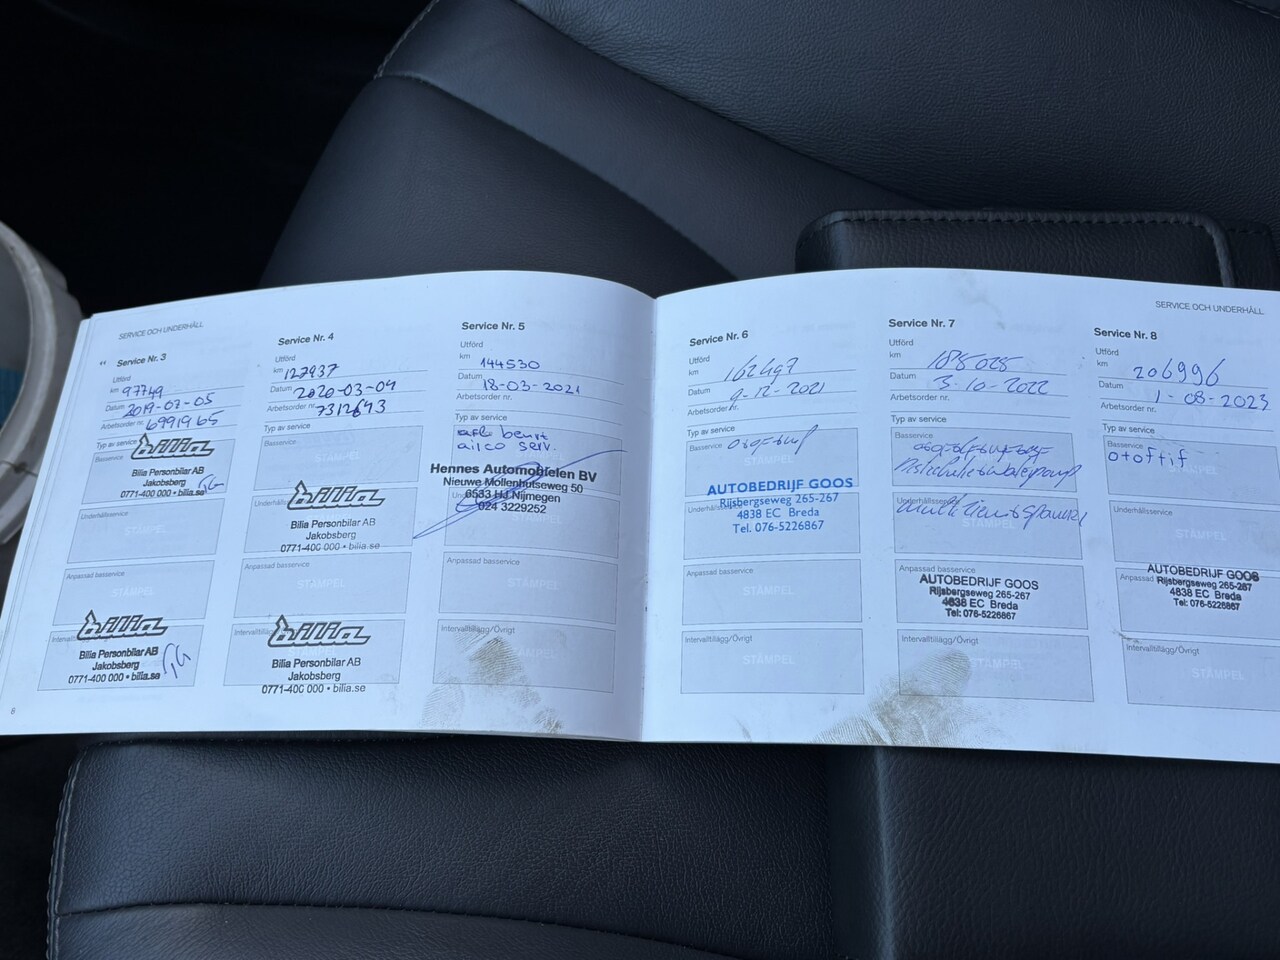 SERVICE OCH UNDERHÅLL
Service Nr. 3
Utförd
km 97749
Datum 2019-07-05
Arbetsorder nr. 6991965
Typ av service
Basservice
bilia
Bilia Personbilar AB
Jakobsberg
0771-400 000 • bilia.se
Underhållsservice
STÄMPEL
Anpassad basservice
STÄMPEL
bilia
Bilia Personbilar AB
Jakobsberg
0771-400 000 • bilia.se
8
Service Nr. 4
Utförd
km 127937
Datum 2020-03-04
Arbetsorder nr. 7312643
Typ av service
Basservice
STÄMPEL
bilia
Bilia Personbilar AB
Jakobsberg
0771-400 000 • bilia.se
Anpassad basservice
STÄMPEL
bilia
Bilia Personbilar AB
Jakobsberg
0771-400 000 • bilia.se
Service Nr. 5
Utförd
km 144530
Datum 18-03-2021
Arbetsorder nr.
Typ av service
afl beurt
airco serv.
Hennes Automobielen BV
Nieuwe Mollenhutseweg 50
6533 HJ Nijmegen
024 3229252
Anpassad basservice
STÄMPEL
Intervalltillägg/Övrigt
STÄMPEL
Service Nr. 6
Utförd
km 162497
Datum 9-12-2021
Arbetsorder nr.
Typ av service
Basservice
AUTOBEDRIJF GOOS
Rijsbergseweg 265-267
4838 EC Breda
Tel. 076-5226867
Anpassad basservice
STÄMPEL
Intervalltillägg/Övrigt
STÄMPEL
Service Nr. 7
Utförd
km 185025
Datum 3-10-2022
Arbetsorder nr.
Typ av service
Basservice
Underhållsservice
STÄMPEL
Anpassad basservice
AUTOBEDRIJF GOOS
Rijsbergseweg 265-267
4838 EC Breda
Tel: 076-5226867
Intervalltillägg/Övrigt
STÄMPEL
SERVICE OCH UNDERHÅLL
Service Nr. 8
Utförd
km 206996
Datum 1-08-2023
Arbetsorder nr.
Typ av service
Basservice
o+of+if
STÄMPEL
Underhållsservice
STÄMPEL
Anpassad
AUTOBEDRIJF GOOS
Rijsbergseweg 265-267
4838 EC Breda
Tel: 076-5226867
Intervalltillägg/Övrigt
STÄMPEL